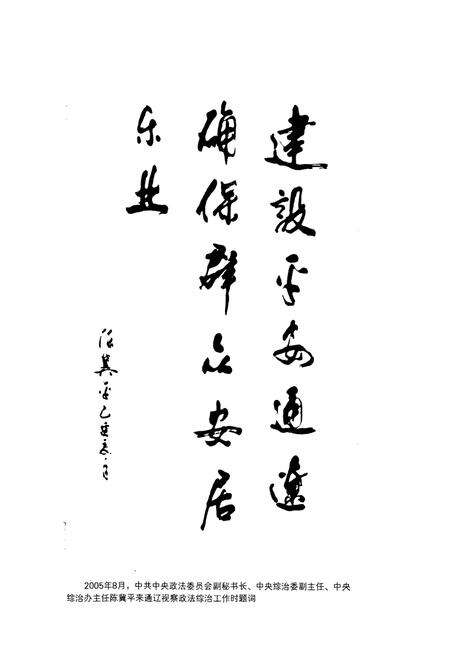 建设平安通辽
确保群众安居
乐业
陈冀平
2005年8月，中共中央政法委员会副秘书长、中央综治委副主任、中央
综治办主任陈冀平来通辽视察政法综治工作时题词